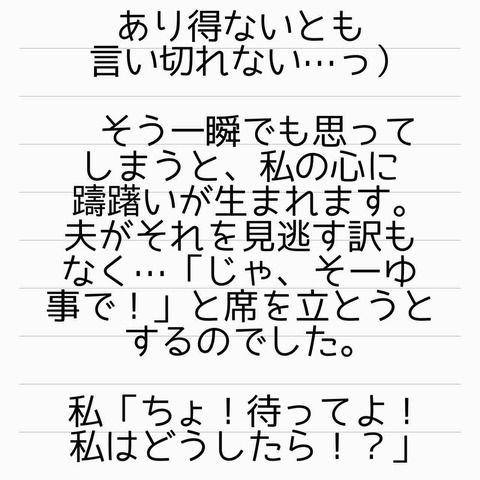 あり得ないとも
言い切れない…っ）
そう一瞬でも思って
しまうと、私の心に
躊躇いが生まれます。
夫がそれを見逃す訳も
なく…「じゃ、そーゆ
事で！」と席を立とうと
するのでした。
私「ちょ！待ってよ！
私はどうしたら！？」